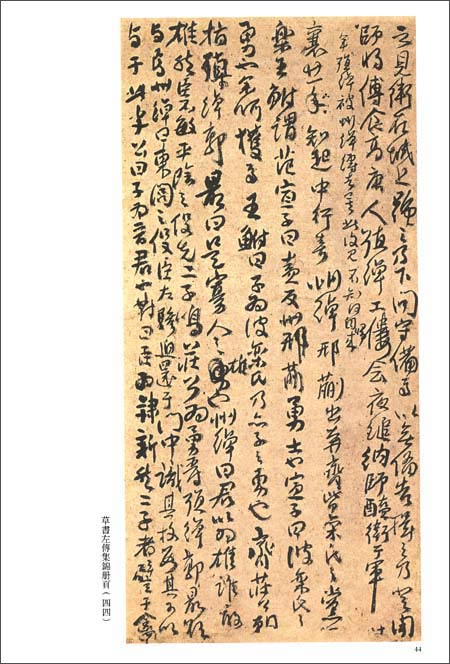 之見衛在城上號之乃下問守備焉以無備告揖之乃登聞
師將傅食高唐人殖綽工僂會夜縋納師醢衛于軍
殖綽被州綽此復見不知何
襄廿一年知起中行喜州綽邢蒯出奔齊皆欒氏之黨也
樂王鮒謂范宣子曰盍反州綽邢蒯勇士也宣子曰彼欒氏之
勇也余何獲焉王鮒曰子為彼欒氏乃亦子之勇也齊莊公朝
指殖綽郭最曰是寡人之雄也州綽曰君以為雄誰敢
雄然臣不敏平陰之役先二子鳴莊公為勇爵殖綽郭最欲
與焉州綽曰東閭之役臣左驂迫還于門中識其枚數其可以
與于此乎公曰子為晉君也對曰臣為隸新然二子者譬于禽
草書左傳集錦册頁（四四）
44